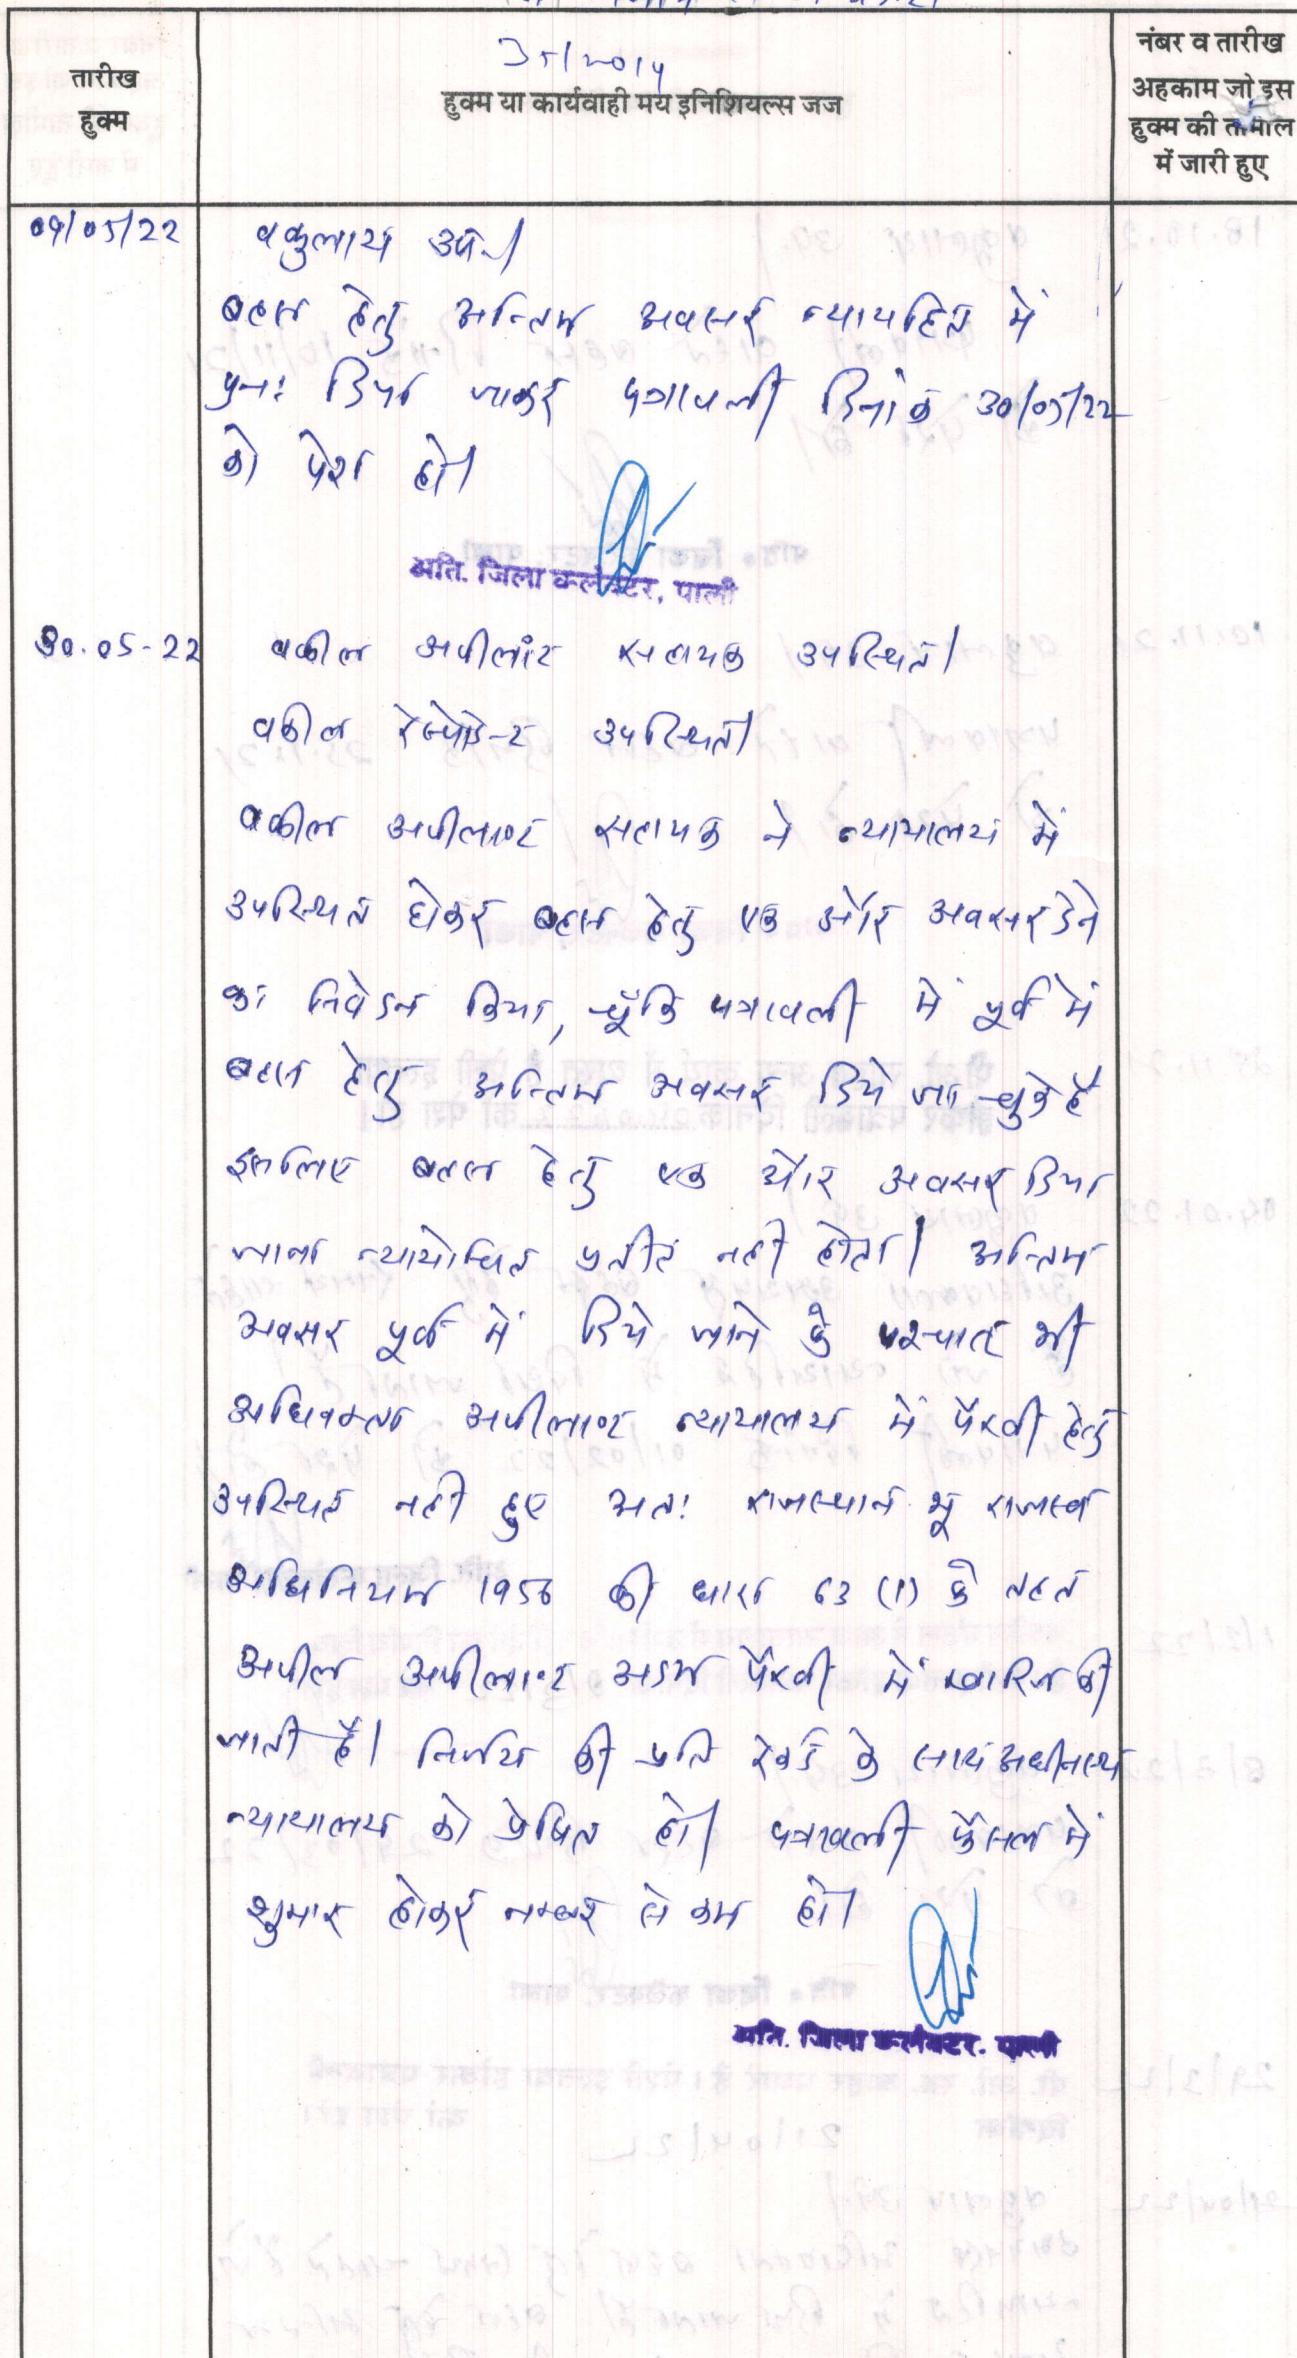 35/2014
तारीख
हुक्म
हुक्म या कार्यवाही मय इनिशियल्स जज
नंबर व तारीख
अहकाम जो इस
हुक्म की तामील
में जारी हुए
09/05/22 वकुलाय उप.।
बहस हेतु अन्तिम अवसर न्यायहित में
पुनः दिया जाकर पत्रावली दिनांक 30/05/22
को पेश हो।
अति. जिला कलेक्टर, पाली
30.05-22 वकील अपीलांट सहायक उपस्थित।
वकील रेस्पोडेन्ट उपस्थित।
वकील अपीलाण्ट सहायक ने न्यायालय में
उपस्थित होकर बहस हेतु एक और अवसर देने
का निवेदन किया, चूँकि पत्रावली में पूर्व में
बहस हेतु अन्तिम अवसर दिये जा चुके है
इसलिए बहस हेतु एक और अवसर दिया
जाना न्यायोचित प्रतीत नही होता। अन्तिम
अवसर पूर्व में दिये जाने के पश्चात भी
अधिवक्ता अपीलाण्ट न्यायालय में पैरवी हेतु
उपस्थित नही हुए अतः राजस्थान भू राजस्व
अधिनियम 1956 की धारा 63 (1) के तहत
अपील अपीलाण्ट अदम पैरवी में खारिज की
जाती है। निर्णय की प्रति रेकर्ड के साथ अधीनस्थ
न्यायालय को प्रेषित हो। पत्रावली फैसल में
शुमार होकर नम्बर से कम हो।
अति. जिला कलेक्टर. पाली